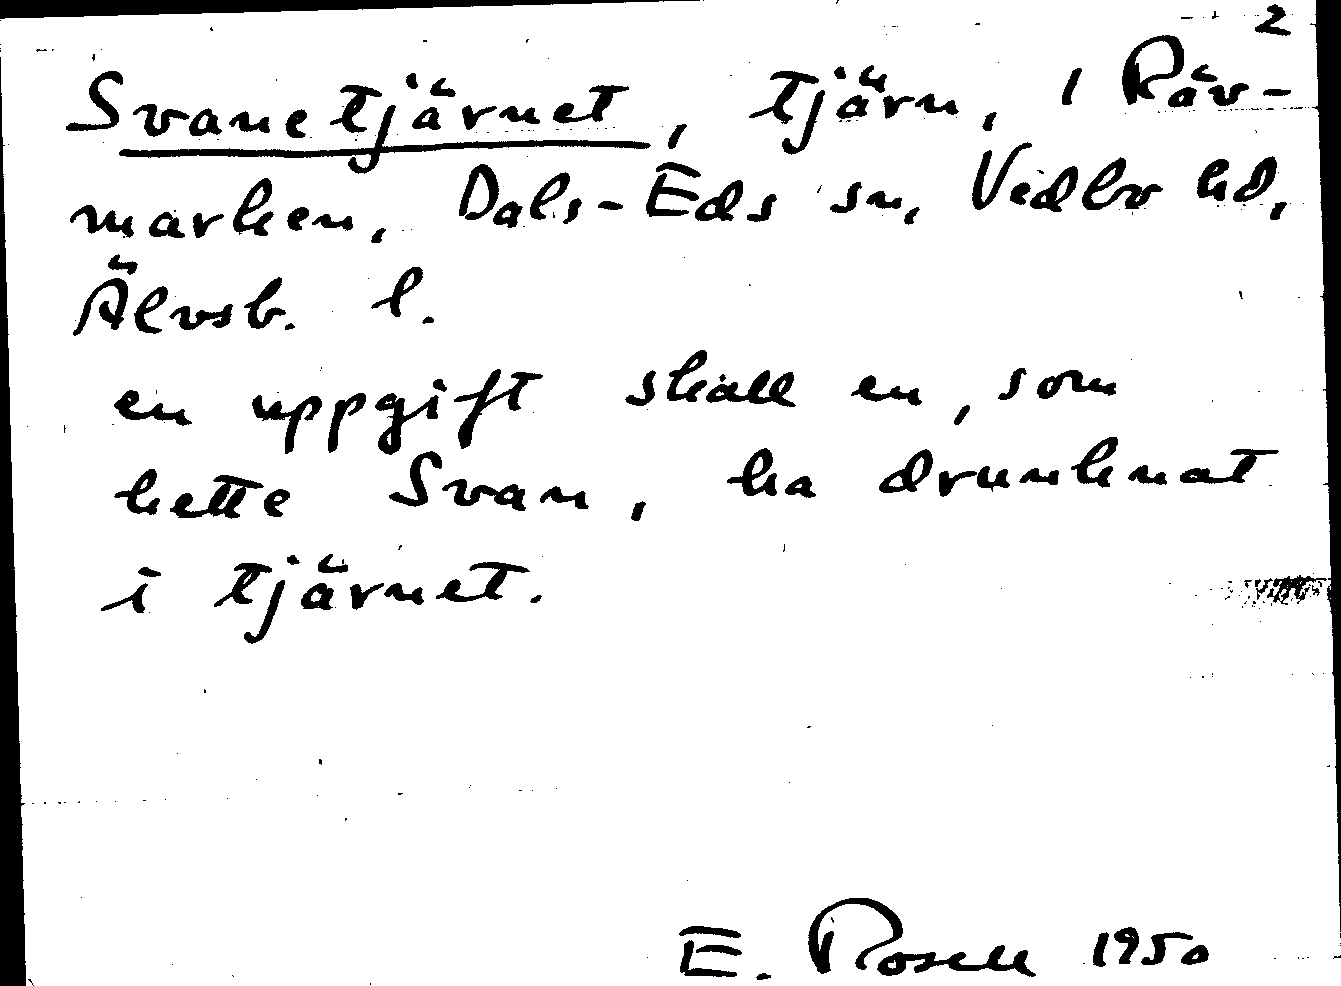 2
Svanetjärnet, tjärn, i Räv-
marken, Dals-Eds sn, Vedbo hd,
Älvsb. l.
en uppgift skall en, som
hette Svan, ha drunknat
i tjärnet.
E. Rosell 1950